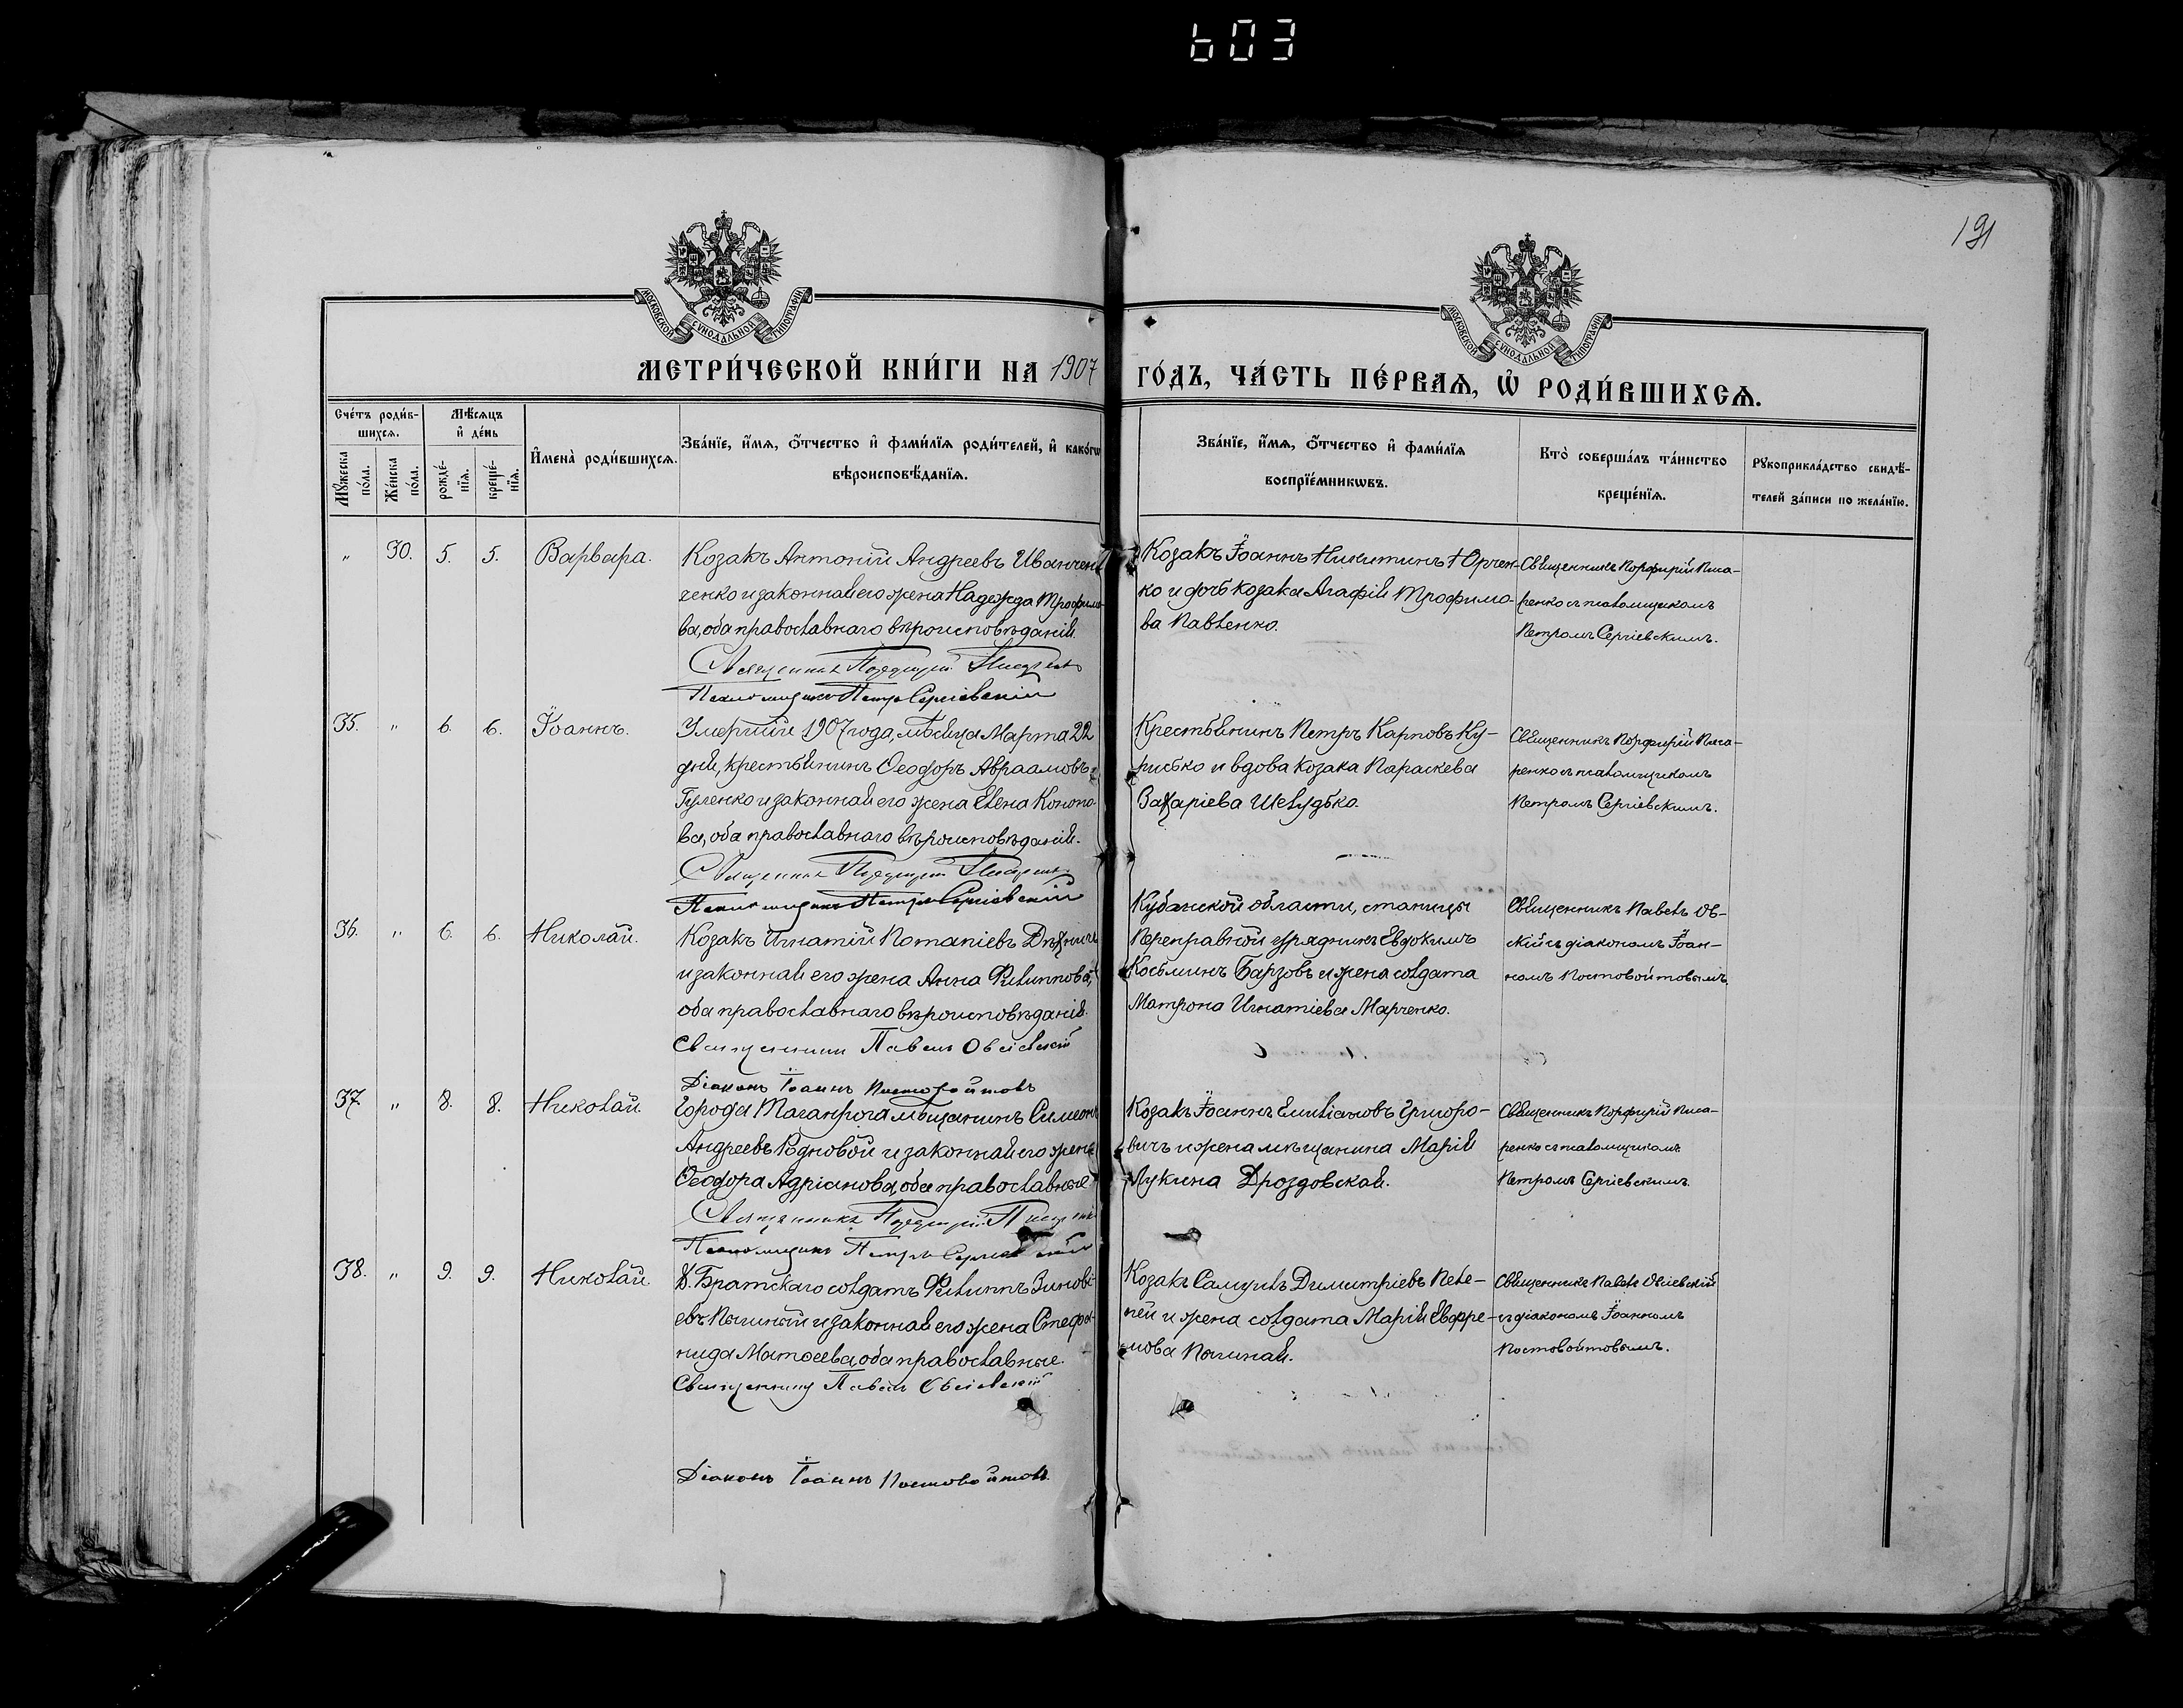 603
191
МОСКОВСКОЙ СѴНОДАЛЬНОЙ ТИПОГРАФІИ
МОСКОВСКОЙ СѴНОДАЛЬНОЙ ТИПОГРАФІИ
МЕТРИ́ЧЕСКОЙ КНИ́ГИ НА 1907 ГО́ДЪ, ЧА́СТЬ ПЕ́РВАѦ, Ѡ҆ РОДИ́ВШИХСѦ.
Сче́тъ роди́в-
шихсѧ.
Мѣ́сѧцъ
и҆ де́нь
Мꙋ́жеска
по́ла.
Же́нска
по́ла.
рожде́-
нїѧ.
креще́-
нїѧ.
И҆мена̀ роди́вшихсѧ.
Зва́нїе, и҆́мѧ, ѻ҆́тчество и҆ фами́лїѧ роди́телей, и҆ како́гѡ
вѣроисповѣ́данїѧ.
Зва́нїе, и҆́мѧ, ѻ҆́тчество и҆ фами́лїѧ
воспрїе́мникѡвъ.
Кто̀ соверша́лъ та́инство
креще́нїѧ.
Рꙋкоприкла́дство свидѣ́-
телей за́писи по жела́нїю.
" 30. 5. 5. Варвара.
Козакъ Антоній Андреевъ
ченко и законная его жена Надежда Трофимо-
ва, оба православнаго вѣроисповѣданія.
Священникъ Порфирій Писаренко
Псаломщикъ Петръ Сергіевскій
Козакъ Іоаннъ Никитинъ Юрчен-
ко и дочь козака Агафія Трофимо-
ва Павленко.
Священникъ Порфирій Писа-
ренко съ псаломщикомъ
Петромъ Сергіевскимъ.
35. " 6. 6. Іоаннъ.
Умершій 1907 года, мѣсяца Марта 22
дня, крестьянинъ Ѳеодоръ Авраамовъ
и законная его жена ЕленаКонона-
ва, оба православнаго вѣроисповѣданія.
Священникъ Порфирій Писаренко
Псаломщикъ Петръ Сергіевскій
Крестьянинъ Петръ Карповъ Ку-
рисько и вдова козака Параскева
Захаріева Шелудько.
Священникъ Порфирій Писа-
ренко съ псаломщикомъ
Петромъ Сергіевскимъ.
36. " 6. 6. Николай.
Козакъ Игнатій Потапіевъ
и законная его жена Анна Филиппова,
оба православнаго вѣроисповѣданія.
Священникъ Павелъ Овсіевскій
Діаконъ Іоаннъ Постовойтовъ
Кубанской области, станицы
Переправной урядникъ Евдокимъ
Косьминъ Барзовъ и жена солдата
Матрона Игнатіева Марченко.
Священникъ Павелъ Ов-
скій съ діакономъ Іоан-
номъ Постовойтовымъ.
37. " 8. 8. Николай.
Города Таганрога мѣщанинъ Симеонъ
Андреевъ и законная его жена
Ѳеодора Адріанова, оба православные.
Священникъ Порфирій Писаренко
Псаломщикъ Петръ Сергіевскій
Козакъ Іоаннъ Емиліановъ Григоро-
вичъ и жена мѣщанина Марія
Лукина Дроздовская.
Священникъ Порфирій Писа-
ренко съ псаломщикомъ
Петромъ Сергіевскимъ.
38. " 9. 9. Николай.
Х. Братскаго солдатъ Филиппъ Зиновi-
евъ и законная его жена Стефа-
нида Матѳеева, оба православные.
Священникъ Павелъ Овсіевскій
Діаконъ Іоаннъ Постовойтовъ.
Козакъ Самуилъ Димитріевъ Пеле-
пей и жена солдата Марія Евфре-
мова
Священникъ Павелъ Овсіевскій
съ діакономъ Іоанномъ
Постовойтовымъ.